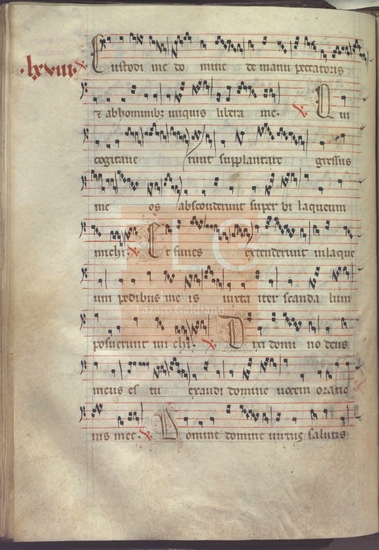 lxviii. Custodi me do mine de manu peccatoris
& ab hominibz iniquis libera me. Qui
cogitave runt supplantare gressus
me os absconderunt superbi laqueum
michi. Et funes extenderunt in laque
um pedibus me is iuxta iter scanda lum
posuerunt mi chi. Dixi domi no deus
meus es tu exaudi domine vocem oratio
nis mee. Domine domine virtus salutis